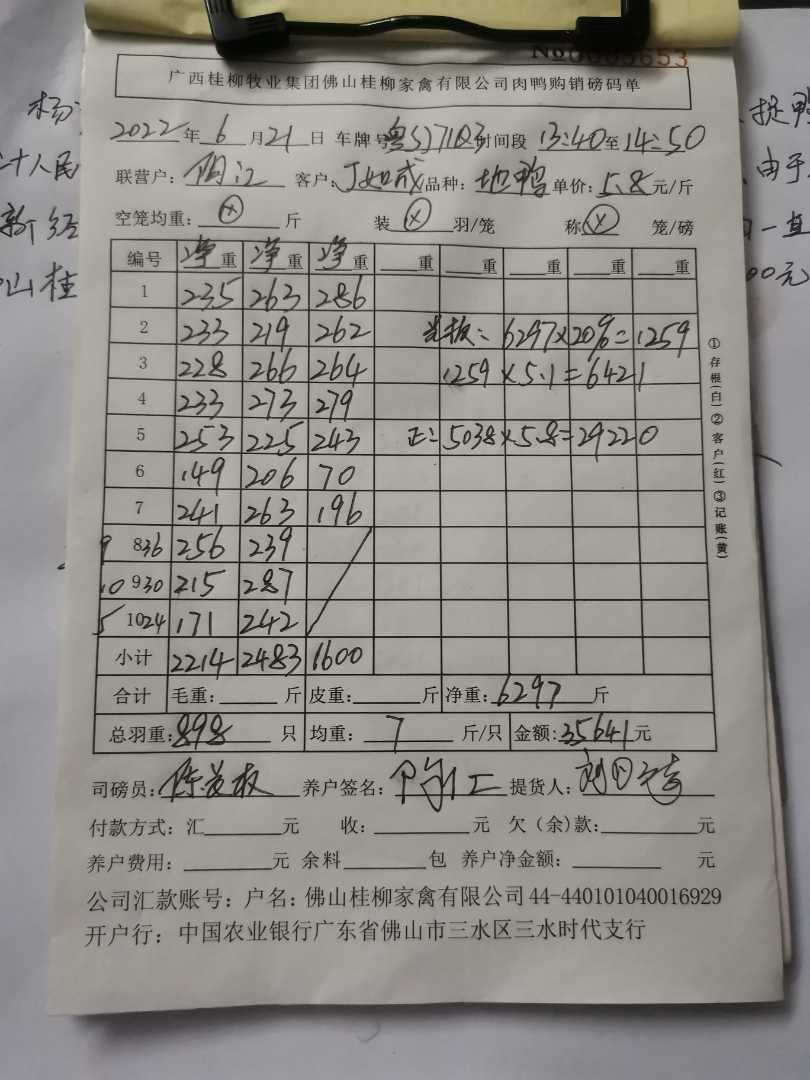 No0005653
广西桂柳牧业集团佛山桂柳家禽有限公司肉鸭购销磅码单
2022年6月21日 车牌号粤S 时间段 13:40至14:50
联营户: 客户: 品种: 地鸭 单价: 5.8元/斤
空笼均重: ⊗ 斤 装 ⊗ 羽/笼 称 ⊗ 笼/磅
编号 净重 净重 净重 重 重 重 重 重
1 235 263 286
2 233 219 262 6297×20%=1259
3 228 266 264 1259×5.1=6421
4 233 273 279
5 253 225 243 正: 5038×5.8=29220
6 149 206 70
7 241 263 196
9 8 36 256 239
10 9 30 215 287
5 10 24 171 242
小计 2214 2483 1600
合计 毛重: 斤 皮重: 斤 净重: 6297 斤
总羽重: 898 只 均重: 7 斤/只 金额: 35641元
司磅员: 养户签名: 提货人:
付款方式: 汇 元 收: 元 欠(余)款: 元
养户费用: 元 余料 包 养户净金额: 元
公司汇款账号: 户名: 佛山桂柳家禽有限公司 44-440101040016929
开户行: 中国农业银行广东省佛山市三水区三水时代支行
①存根(白)②客户(红)③记账(黄)
杨
十人民
新经
山桂
捉鸭
由于
一直
00元